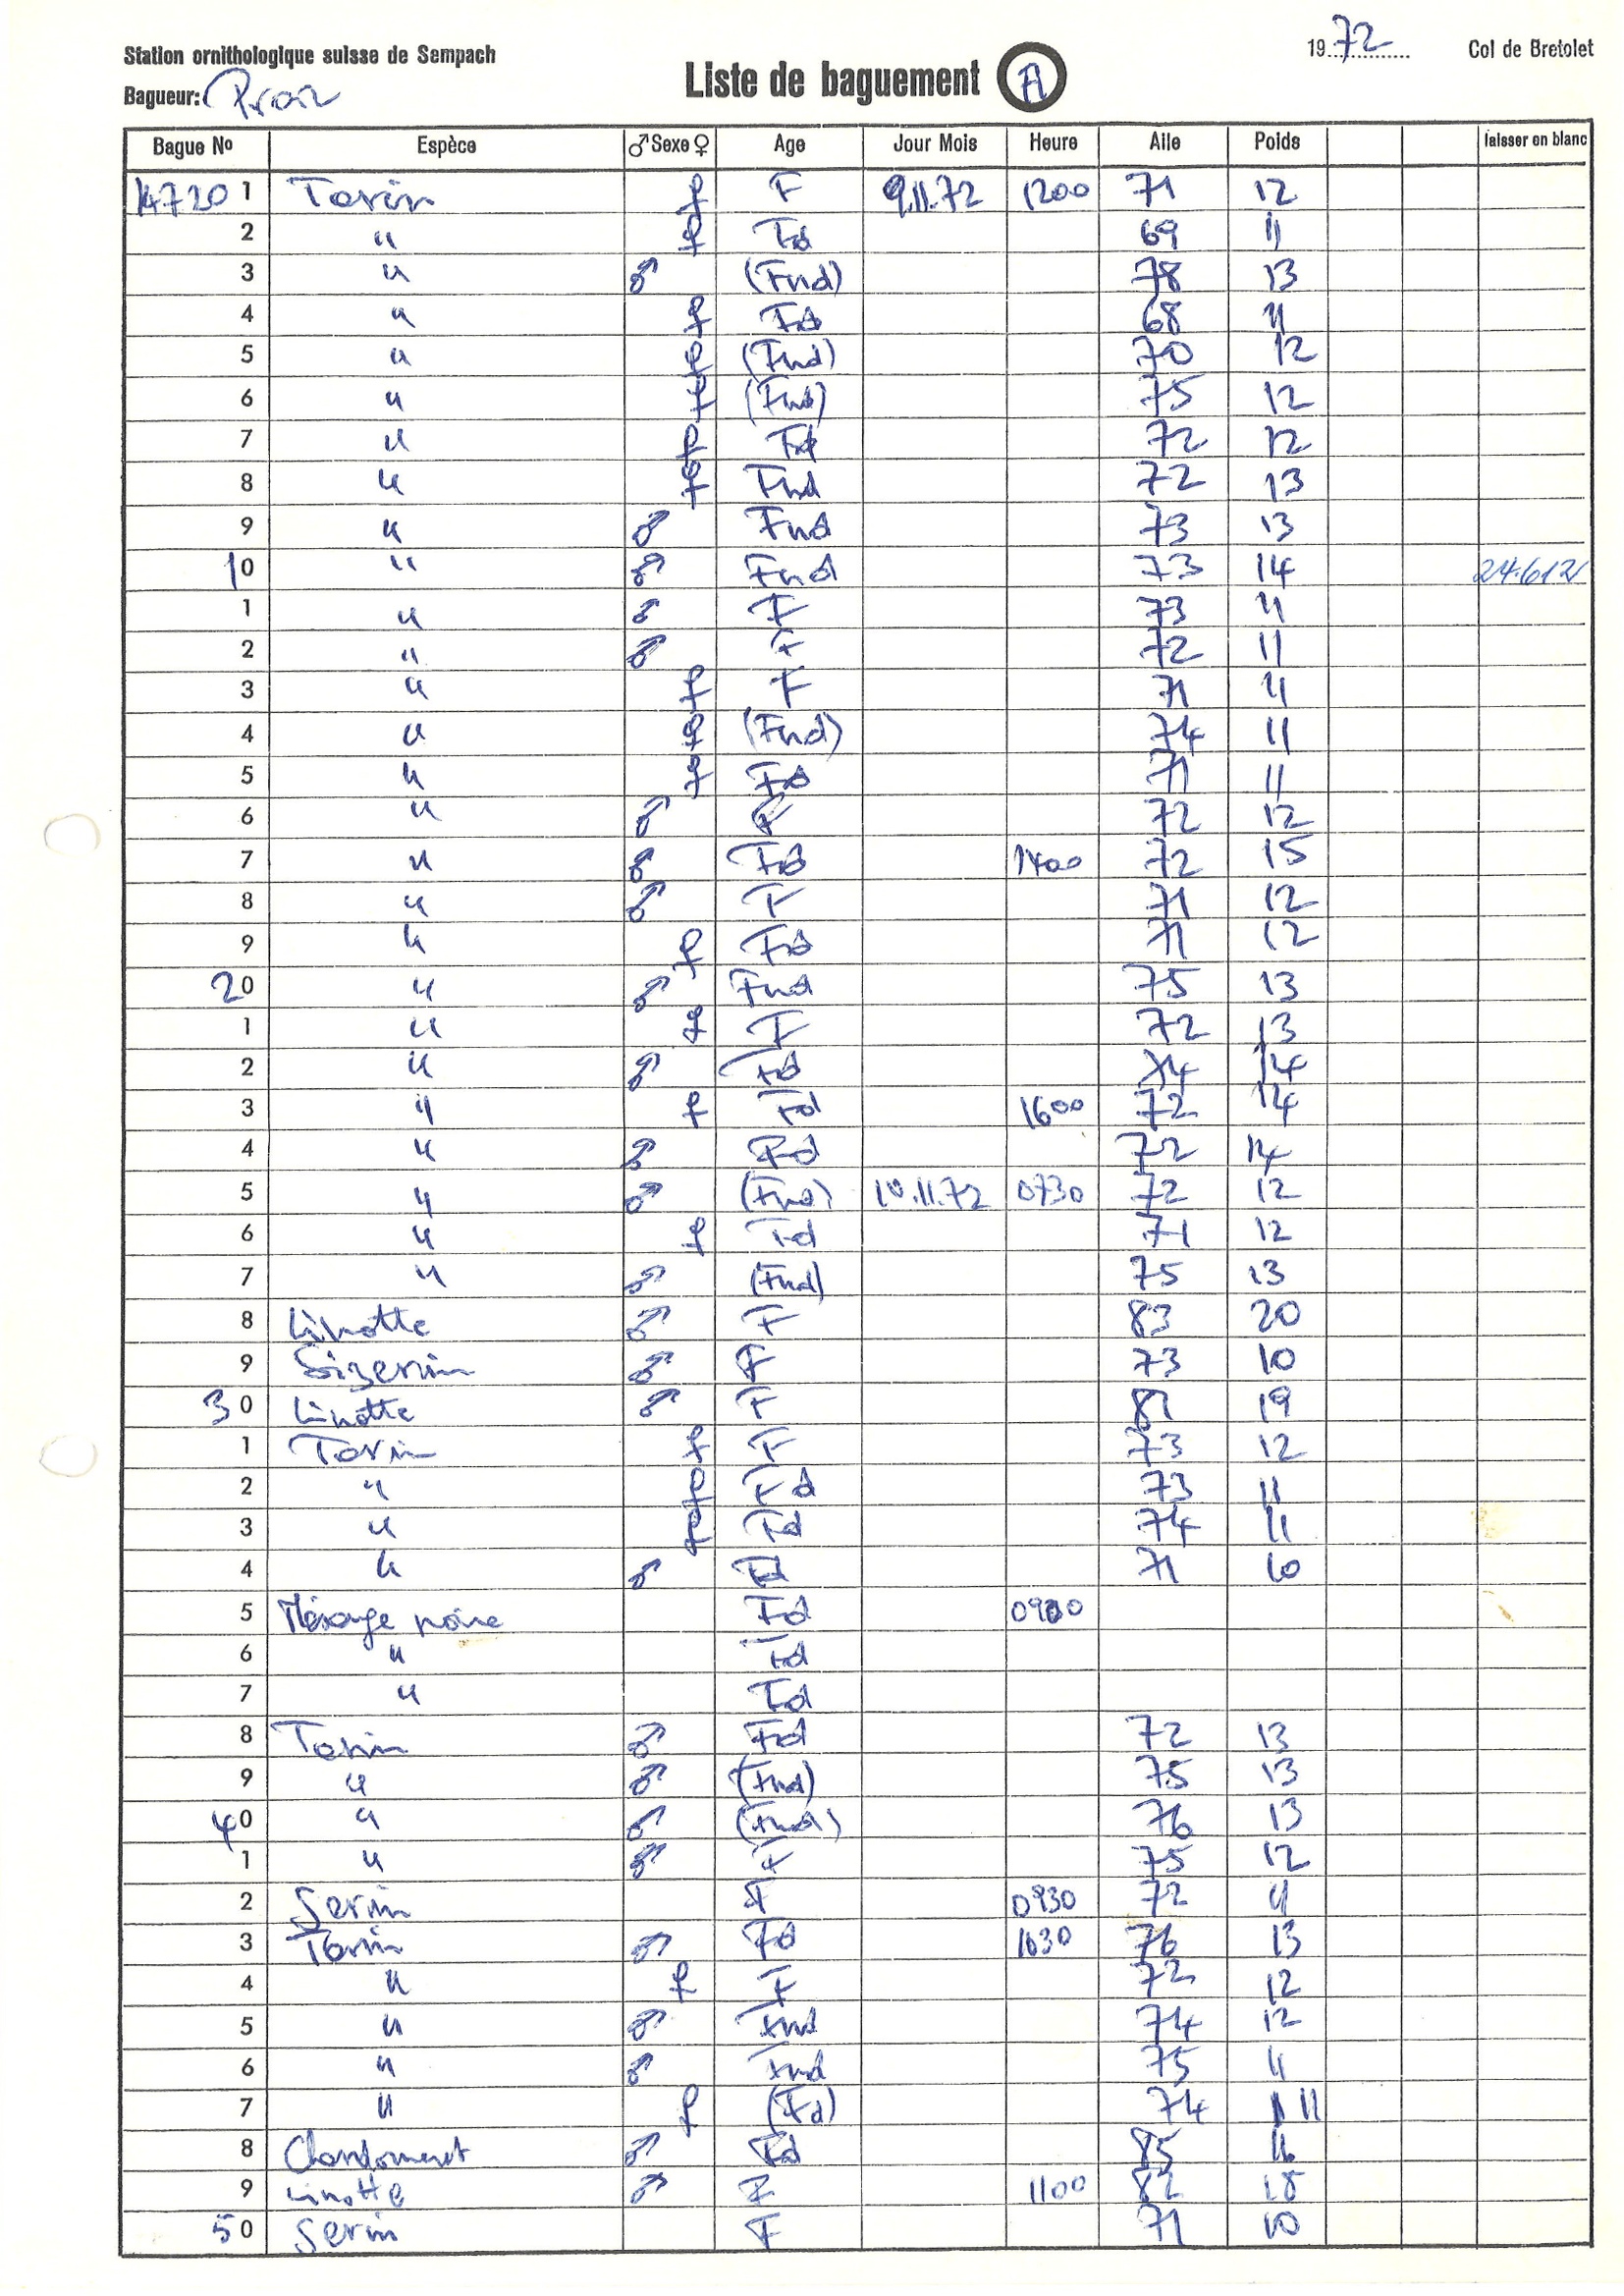 Station ornithologique suisse de Sempach
1972 Col de Bretolet
Liste de baguement A
Bagueur:
Bague No Espèce ♂ Sexe ♀ Age Jour Mois Heure Aile Poids laisser en blanc
14720 1 Tarin ♀ F 9.11.72 1200 71 12
2 " ♀ Fd 69 11
3 " ♂ (Fnd) 78 13
4 " ♀ Fd 68 11
5 " ♀ (Fnd) 70 12
6 " ♀ (Fnd) 75 12
7 " ♀ Fd 72 12
8 " ♀ Fnd 72 13
9 " ♂ Fnd 73 13
10 " ♂ Fnd 73 14
1 " ♂ F 73 11
2 " ♂ F 72 11
3 " ♀ F 71 11
4 " ♀ (Fnd) 74 11
5 " ♀ Fd 71 11
6 " ♂ F 72 12
7 " ♂ Fd 1400 72 15
8 " ♂ F 71 12
9 " ♀ Fd 71 12
20 " ♂ Fnd 75 13
1 " ♀ F 72 13
2 " ♂ Fd 74 14
3 " ♀ Fd 1600 72 14
4 " ♂ Fd 72 14
5 " ♂ (Fnd) 10.11.72 0730 72 12
6 " ♀ Fd 71 12
7 " ♂ (Fnd) 75 13
8 Linotte ♂ F 83 20
9 Sizerin ♂ F 73 10
30 Linotte ♂ F 81 19
1 Tarin ♀ F 73 12
2 " ♀ Fd 73 11
3 " ♀ Fd 74 11
4 " ♂ Fd 71 10
5 Mésange noire Fd 0900
6 " Fd
7 " Fd
8 Tarin ♂ Fd 72 13
9 " ♂ (Fnd) 75 13
40 " ♂ (Fnd) 76 13
1 " ♂ F 75 12
2 Serin F 0930 72 11
3 Tarin ♂ Fd 1030 76 13
4 " ♀ F 72 12
5 " ♂ Fnd 74 12
6 " ♂ Fnd 75 11
7 " ♀ (Fd) 74 11
8 Chardonneret ♂ Fd 85 16
9 Linotte ♂ F 1100 82 18
50 Serin F 71 10